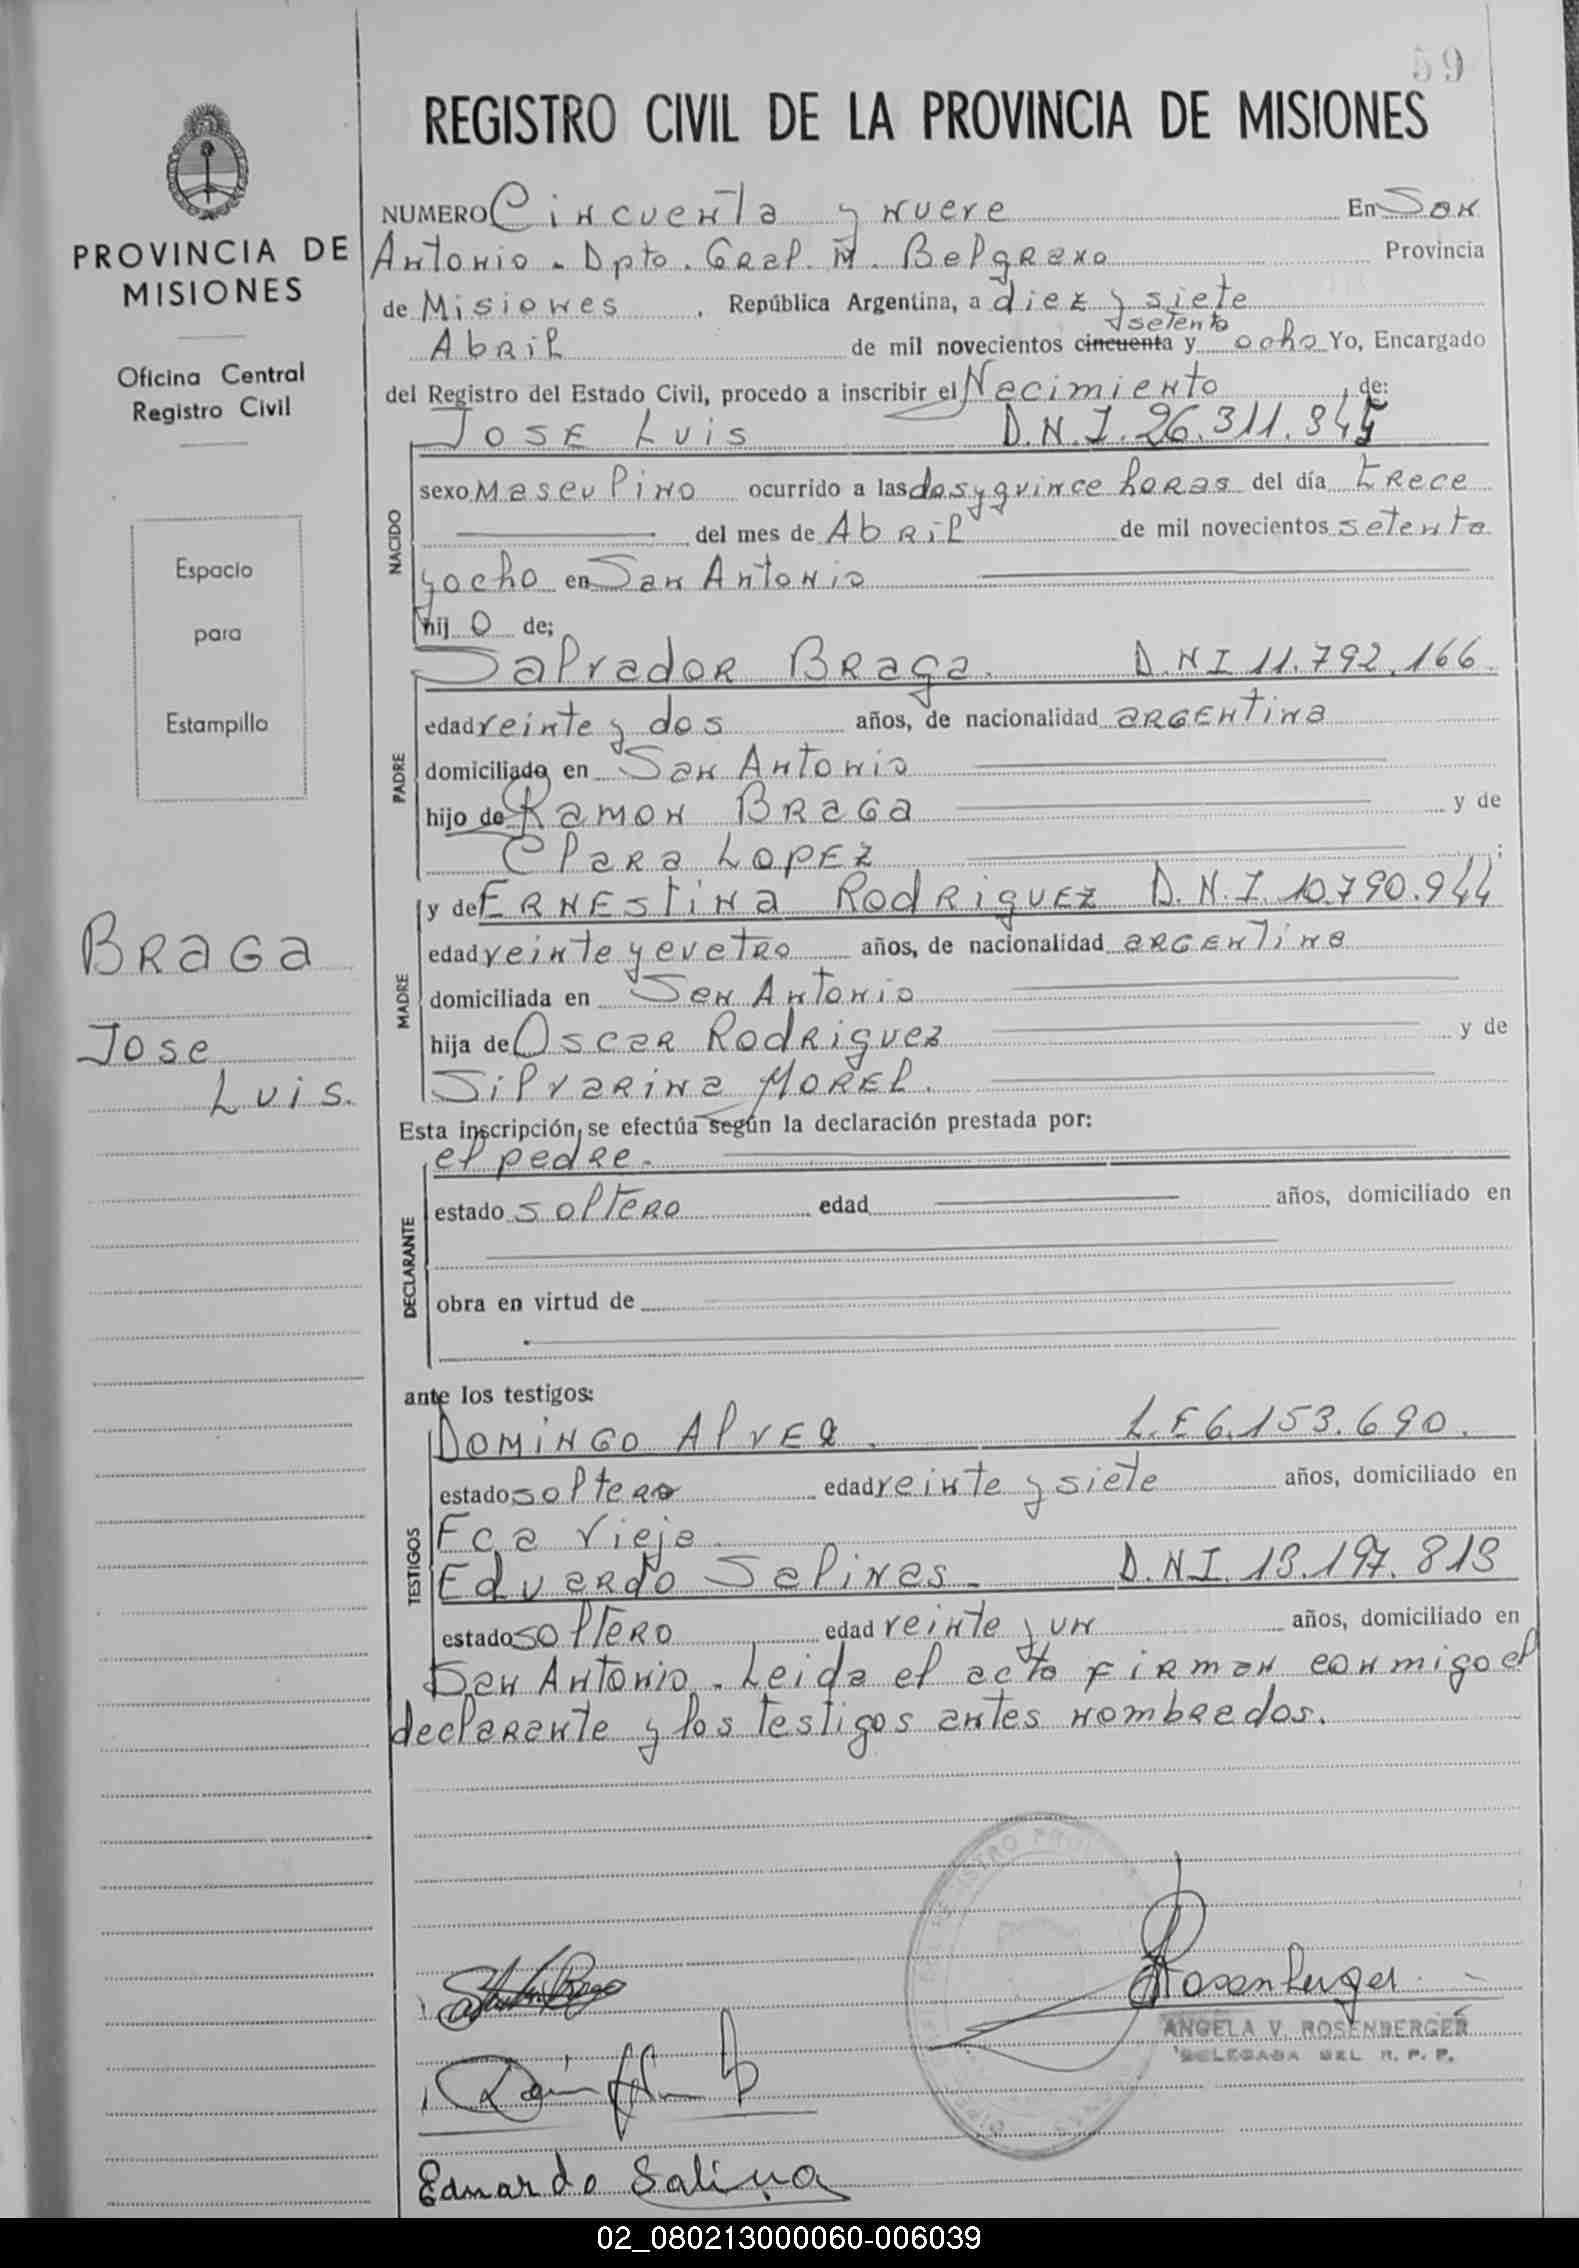 59
REGISTRO CIVIL DE LA PROVINCIA DE MISIONES
PROVINCIA DE
MISIONES
Oficina Central
Registro Civil
Espacio
para
Estampilla
BRAGA
Jose
Luis.
NUMERO Cincuenta y nueve En San
Antonio - Dpto. Gral. M. Belgrano Provincia
de Misiones, República Argentina, a diez y siete
setenta
Abril de mil novecientos cincuenta y ocho Yo, Encargado
del Registro del Estado Civil, procedo a inscribir el Nacimiento de:
JOSE LUIS D.N.I. 26.311.345
NACIDO
sexo masculino ocurrido a las dos y quince horas del día trece
del mes de Abril de mil novecientos setenta
y ocho en San Antonio
hij o de;
Salvador Braga. D.N.I 11.792.166.
PADRE
edad veinte y dos años, de nacionalidad argentina
domiciliado en San Antonio
hijo de Ramon Braga y de
Clara Lopez ;
MADRE
y de Ernestina Rodriguez D.N.I. 10.790.944
edad veinte y cuatro años, de nacionalidad argentina
domiciliada en San Antonio
hija de Oscar Rodriguez y de
Silvarina Morel.
Esta inscripción, se efectúa según la declaración prestada por:
el padre.
DECLARANTE
estado soltero edad años, domiciliado en
obra en virtud de
ante los testigos:
Domingo Alvez. L.E 6.153.690.
TESTIGOS
estado soltero edad veinte y siete años, domiciliado en
Fca Vieja.
Eduardo Salinas. D.N.I. 13.197.813
estado soltero edad veinte y un años, domiciliado en
San Antonio. Leida el acta firman conmigo el
declarante y los testigos antes nombrados.
Rosenberger
ANGELA V. ROSENBERGER
DELEGADA DEL R. P. P.
Eduardo Salina
02_080213000060-006039